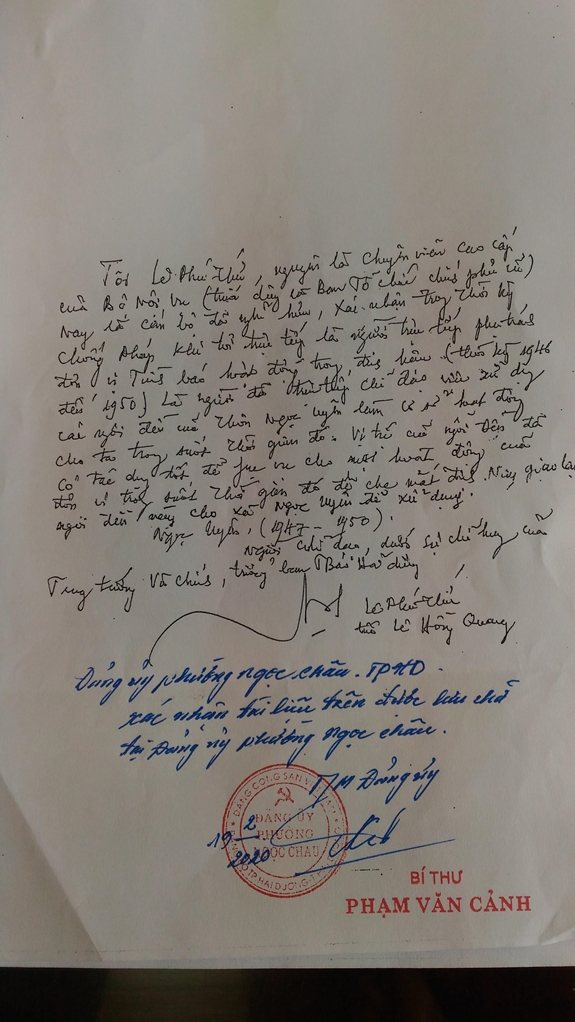 Tôi Lê Phú Thứ, nguyên là chuyên viên cao cấp
của Bộ Nội vụ (trước đây là Ban Tổ chức chính phủ cũ)
nay là cán bộ đã nghỉ hưu, xác nhận trong thời kỳ
chống Pháp khi tôi trực tiếp là người trực tiếp phụ trách
đơn vị Tình báo hoạt động trong địch hậu (thời kỳ 1946
đến 1950) Là người đã trực tiếp chỉ đạo việc xử dụng
cái ngôi đền của thôn Ngọc Uyên làm cơ sở hoạt động
cho ta trong suốt thời gian đó. Vị trí của ngôi đền đã
có tác dụng tốt để phục vụ cho mọi hoạt động của
đơn vị trong suốt thời gian đó để che mắt địch. Nay giao lại
ngôi đền này cho xã Ngọc Uyên để xử dụng.
Ngọc Uyên, (1947 - 1950).
Người chỉ đạo, dưới sự chỉ huy của
Trung tướng Vũ Chính, trưởng ban TBáo Hải Dương
Lê Phú Thứ
tức Lê Hồng Quang
Đảng ủy phường Ngọc Châu. TPHD.
xác nhận tài liệu trên được lưu trữ
tại Đảng ủy phường Ngọc Châu.
T/M Đảng ủy
19 2
2020
ĐẢNG CỘNG SẢN VIỆT NAM
ĐẢNG ỦY
PHƯỜNG
NGỌC CHÂU
TP HẢI DƯƠNG
BÍ THƯ
PHẠM VĂN CẢNH